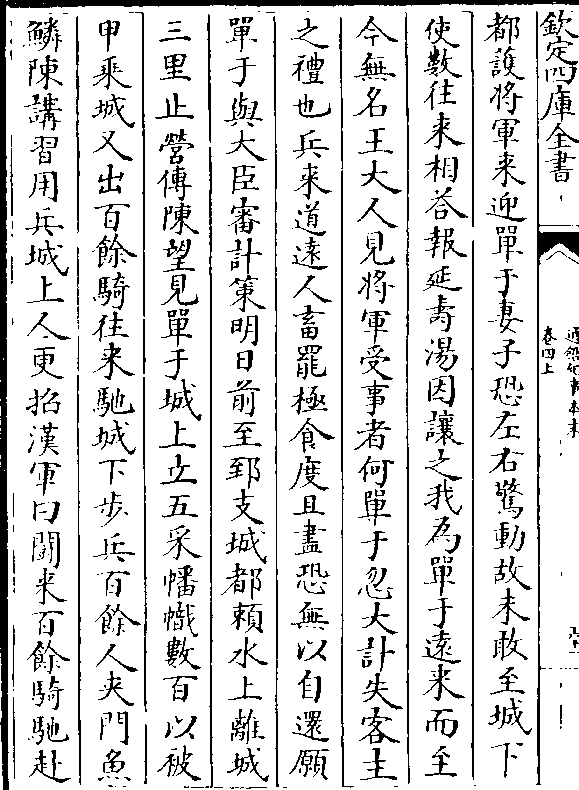 欽定四庫全書
通鑑紀事本末
卷四上
都護將軍来迎單于妻子恐左右驚動故未敢至城下
使數往来相荅報延壽湯因讓之我為單于遠来而至
今無名王大人見將軍受事者何單于忽大計失客主
之禮也兵来道遠人畜罷極食度且盡恐無以自還願
單于與大臣審計策明日前至郅支城都頼水上離城
三里止營傅陳望見單于城上立五采幡幟數百以被
甲乗城又出百餘騎往来馳城下步兵百餘人夾門魚
鱗陳講習用兵城上人更招漢軍曰鬬来百餘騎馳赴